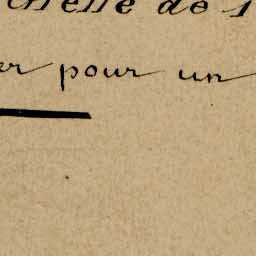 chelle de 1
er pour un